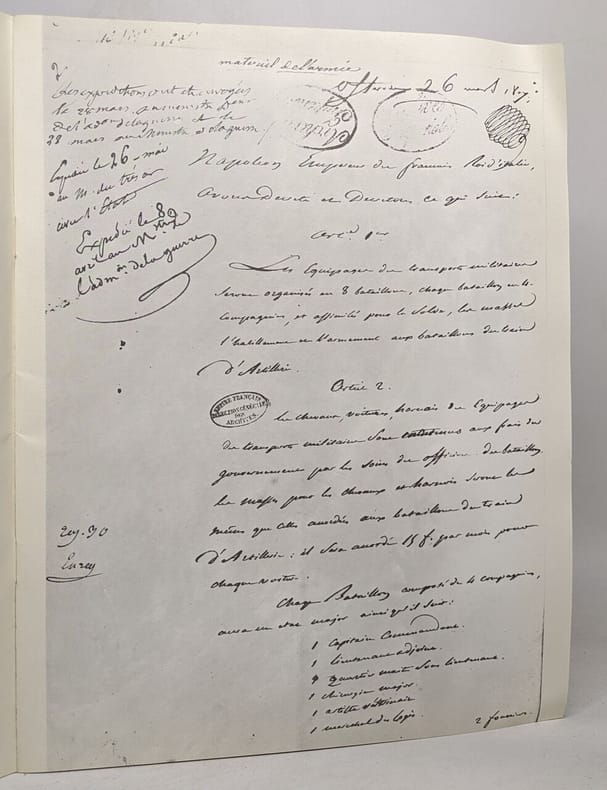 materiel de l'armée
26 mars 1807
Les expéditions ont été envoyés
le 28 mars au ministre
de l'adon de la guerre et le
28 mars au ministre de la guerre
Expédié le 26 mai
au M. du trésor
avec l'Etat
Expédié le 8
avril au Mtre de
l'admon de la guerre
Napoléon Empereur des français Roi d'Italie,
Avons Décrété et Décrétons ce qui suit:
Art. 1er
Les Equipages de transports militaires
seront organisés en 8 bataillons, chaque bataillon en 4
compagnies, et assimilés pour la solde, les masses
l'habillement et l'armement aux bataillons du train
d'Artillerie.
Article 2.
MINISTRE FRANÇAIS
DIRECTION GÉNÉRALE
DES
ARCHIVES
les chevaux, voitures, harnais des Equipages
de transports militaires sont entretenus aux frais du
gouvernement par les soins des officiers des bataillons
les masses pour les chevaux et harnois seront les
mêmes que celles accordées aux bataillons du train
d'Artillerie: il sera accordé 15 f. par mois pour
chaque voiture.
Chaque Bataillon composé de 4 compagnies,
aura un état major ainsi qu'il suit:
1 capitaine Commandant.
1 lieutenant adjoint.
1 quartier maitre sous lieutenant.
1 chirurgien major.
1 artiste vétérinaire
1 marechal des logis.
2 fourriers